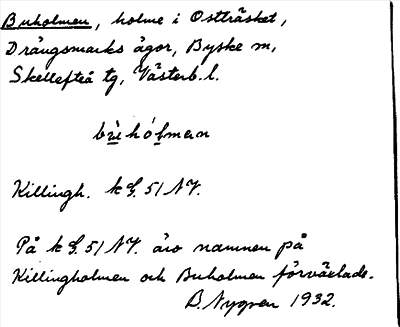 Buholmen, holme i Ostträsket,
Drängsmarks ägor, Byske sn,
Skellefteå tg, Västerb. l.
bu̇̀hólman
Killingh. k G. 51 NV.
På k G. 51 NV. äro namnen på
Killingholmen och Buholmen förväxlade.
B. Nygren 1932.